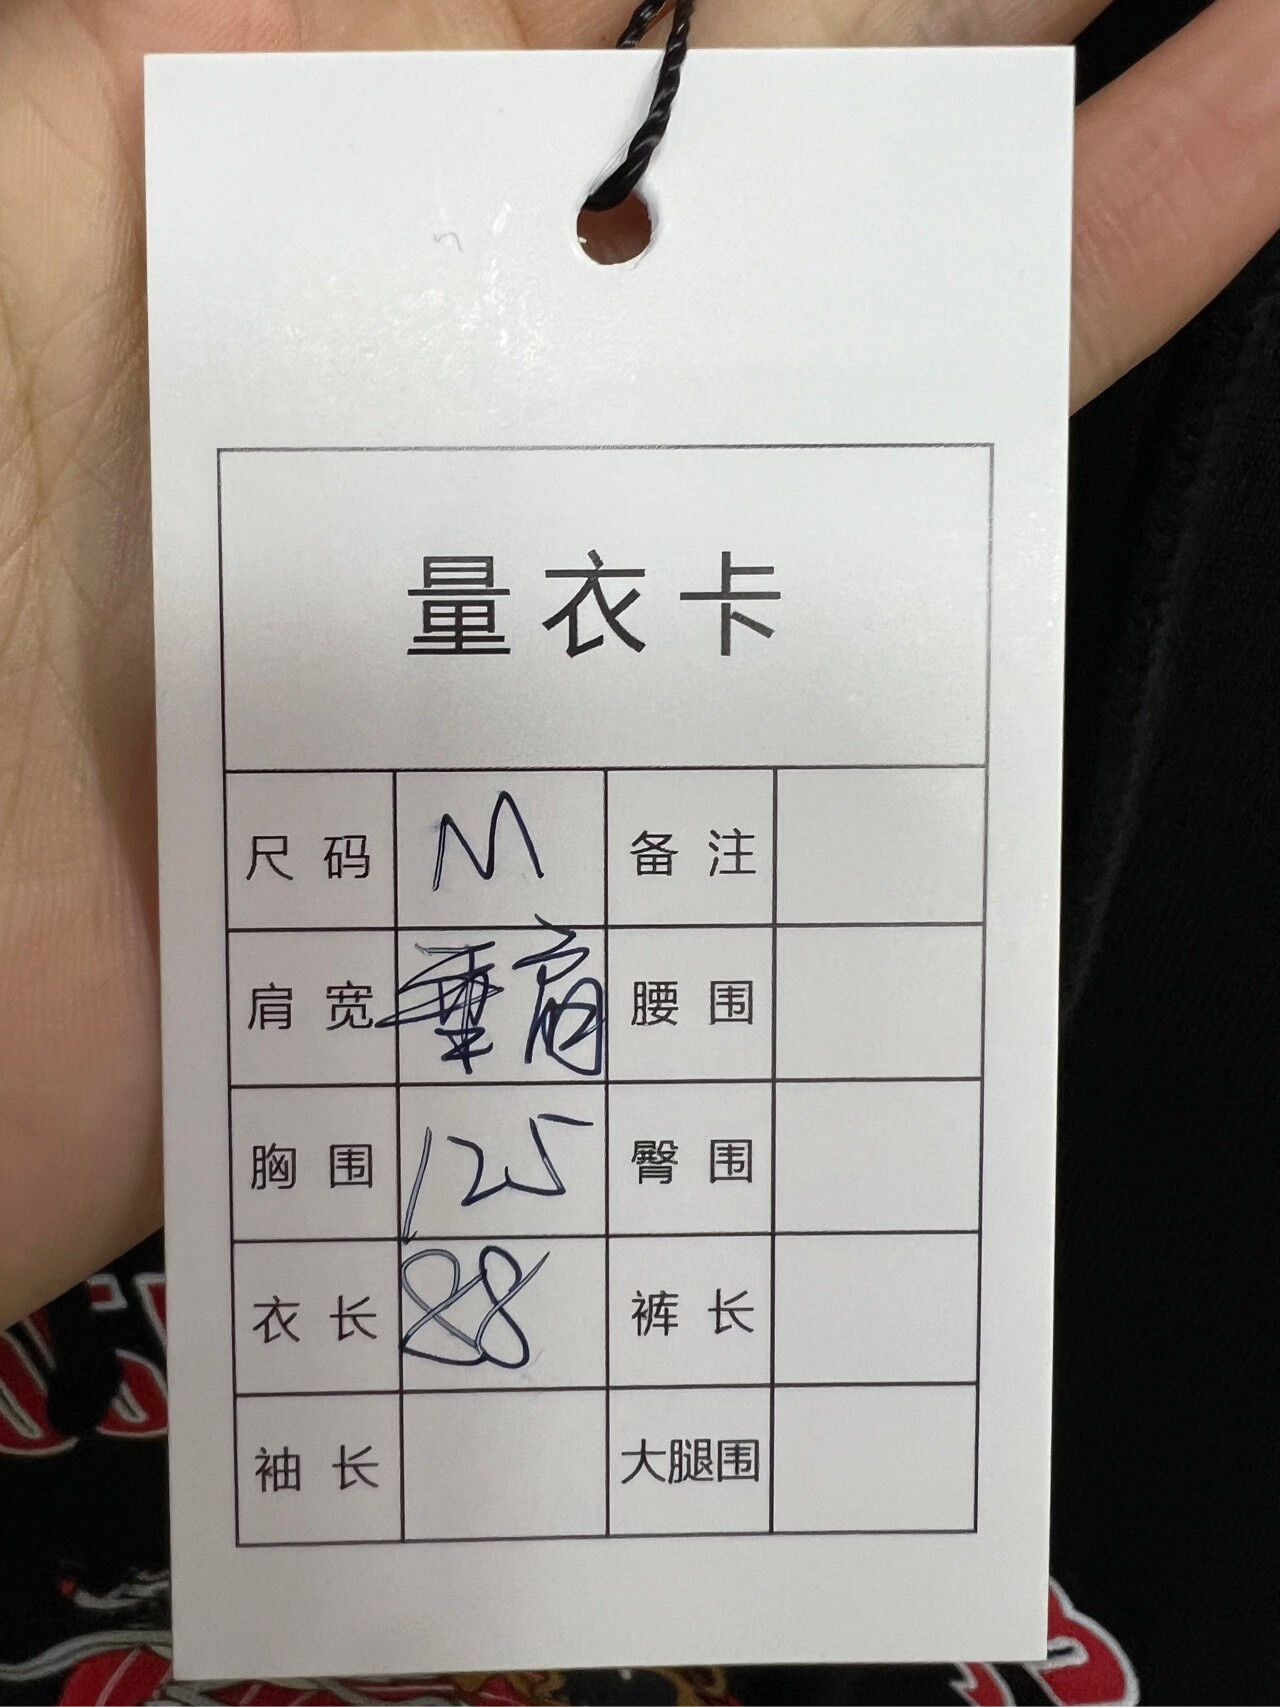 量衣卡
尺码 M 备注
肩宽 垂肩 腰围
胸围 125 臀围
衣长 88 裤长
袖长 大腿围